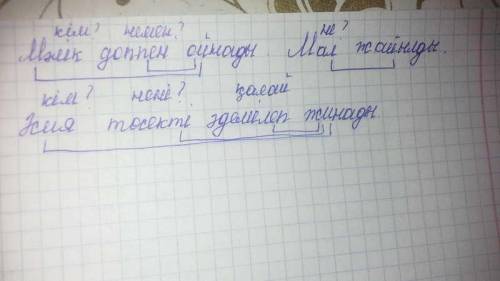 кім? немен? не?
Мәлик доппен ойнады. Мал жайылды.
кім? нені? қалай
Жия төсекті әдемілеп жинады.